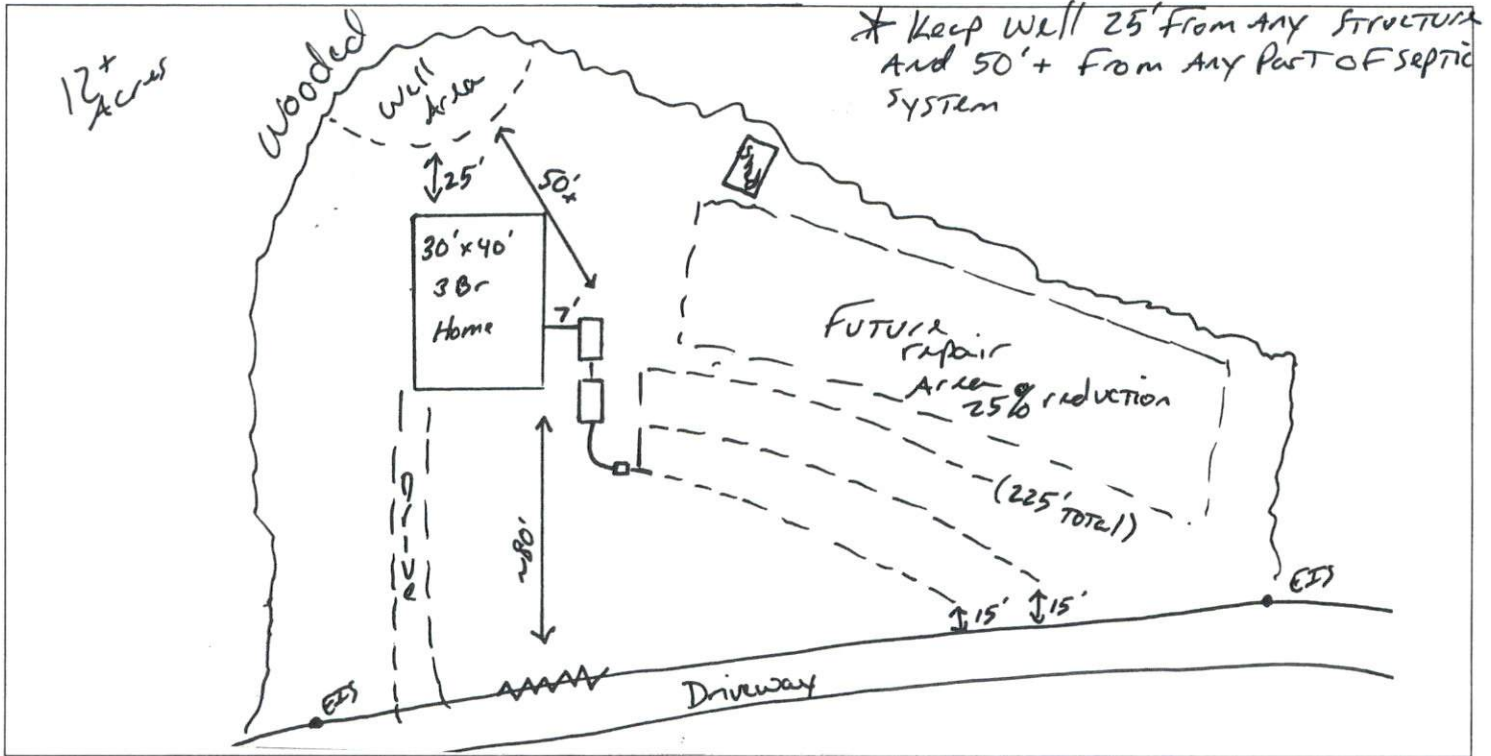 12+
Acres
Wooded
Well
Area
* Keep Well 25' From Any Structure
And 50'+ From Any Part OF Septic
System
25'
50'+
30'x40'
3 Br
Home
7'
Future
repair
Area
25% reduction
(225'
Total)
Drive
~80'
15'
15'
EIS
EIS
Driveway